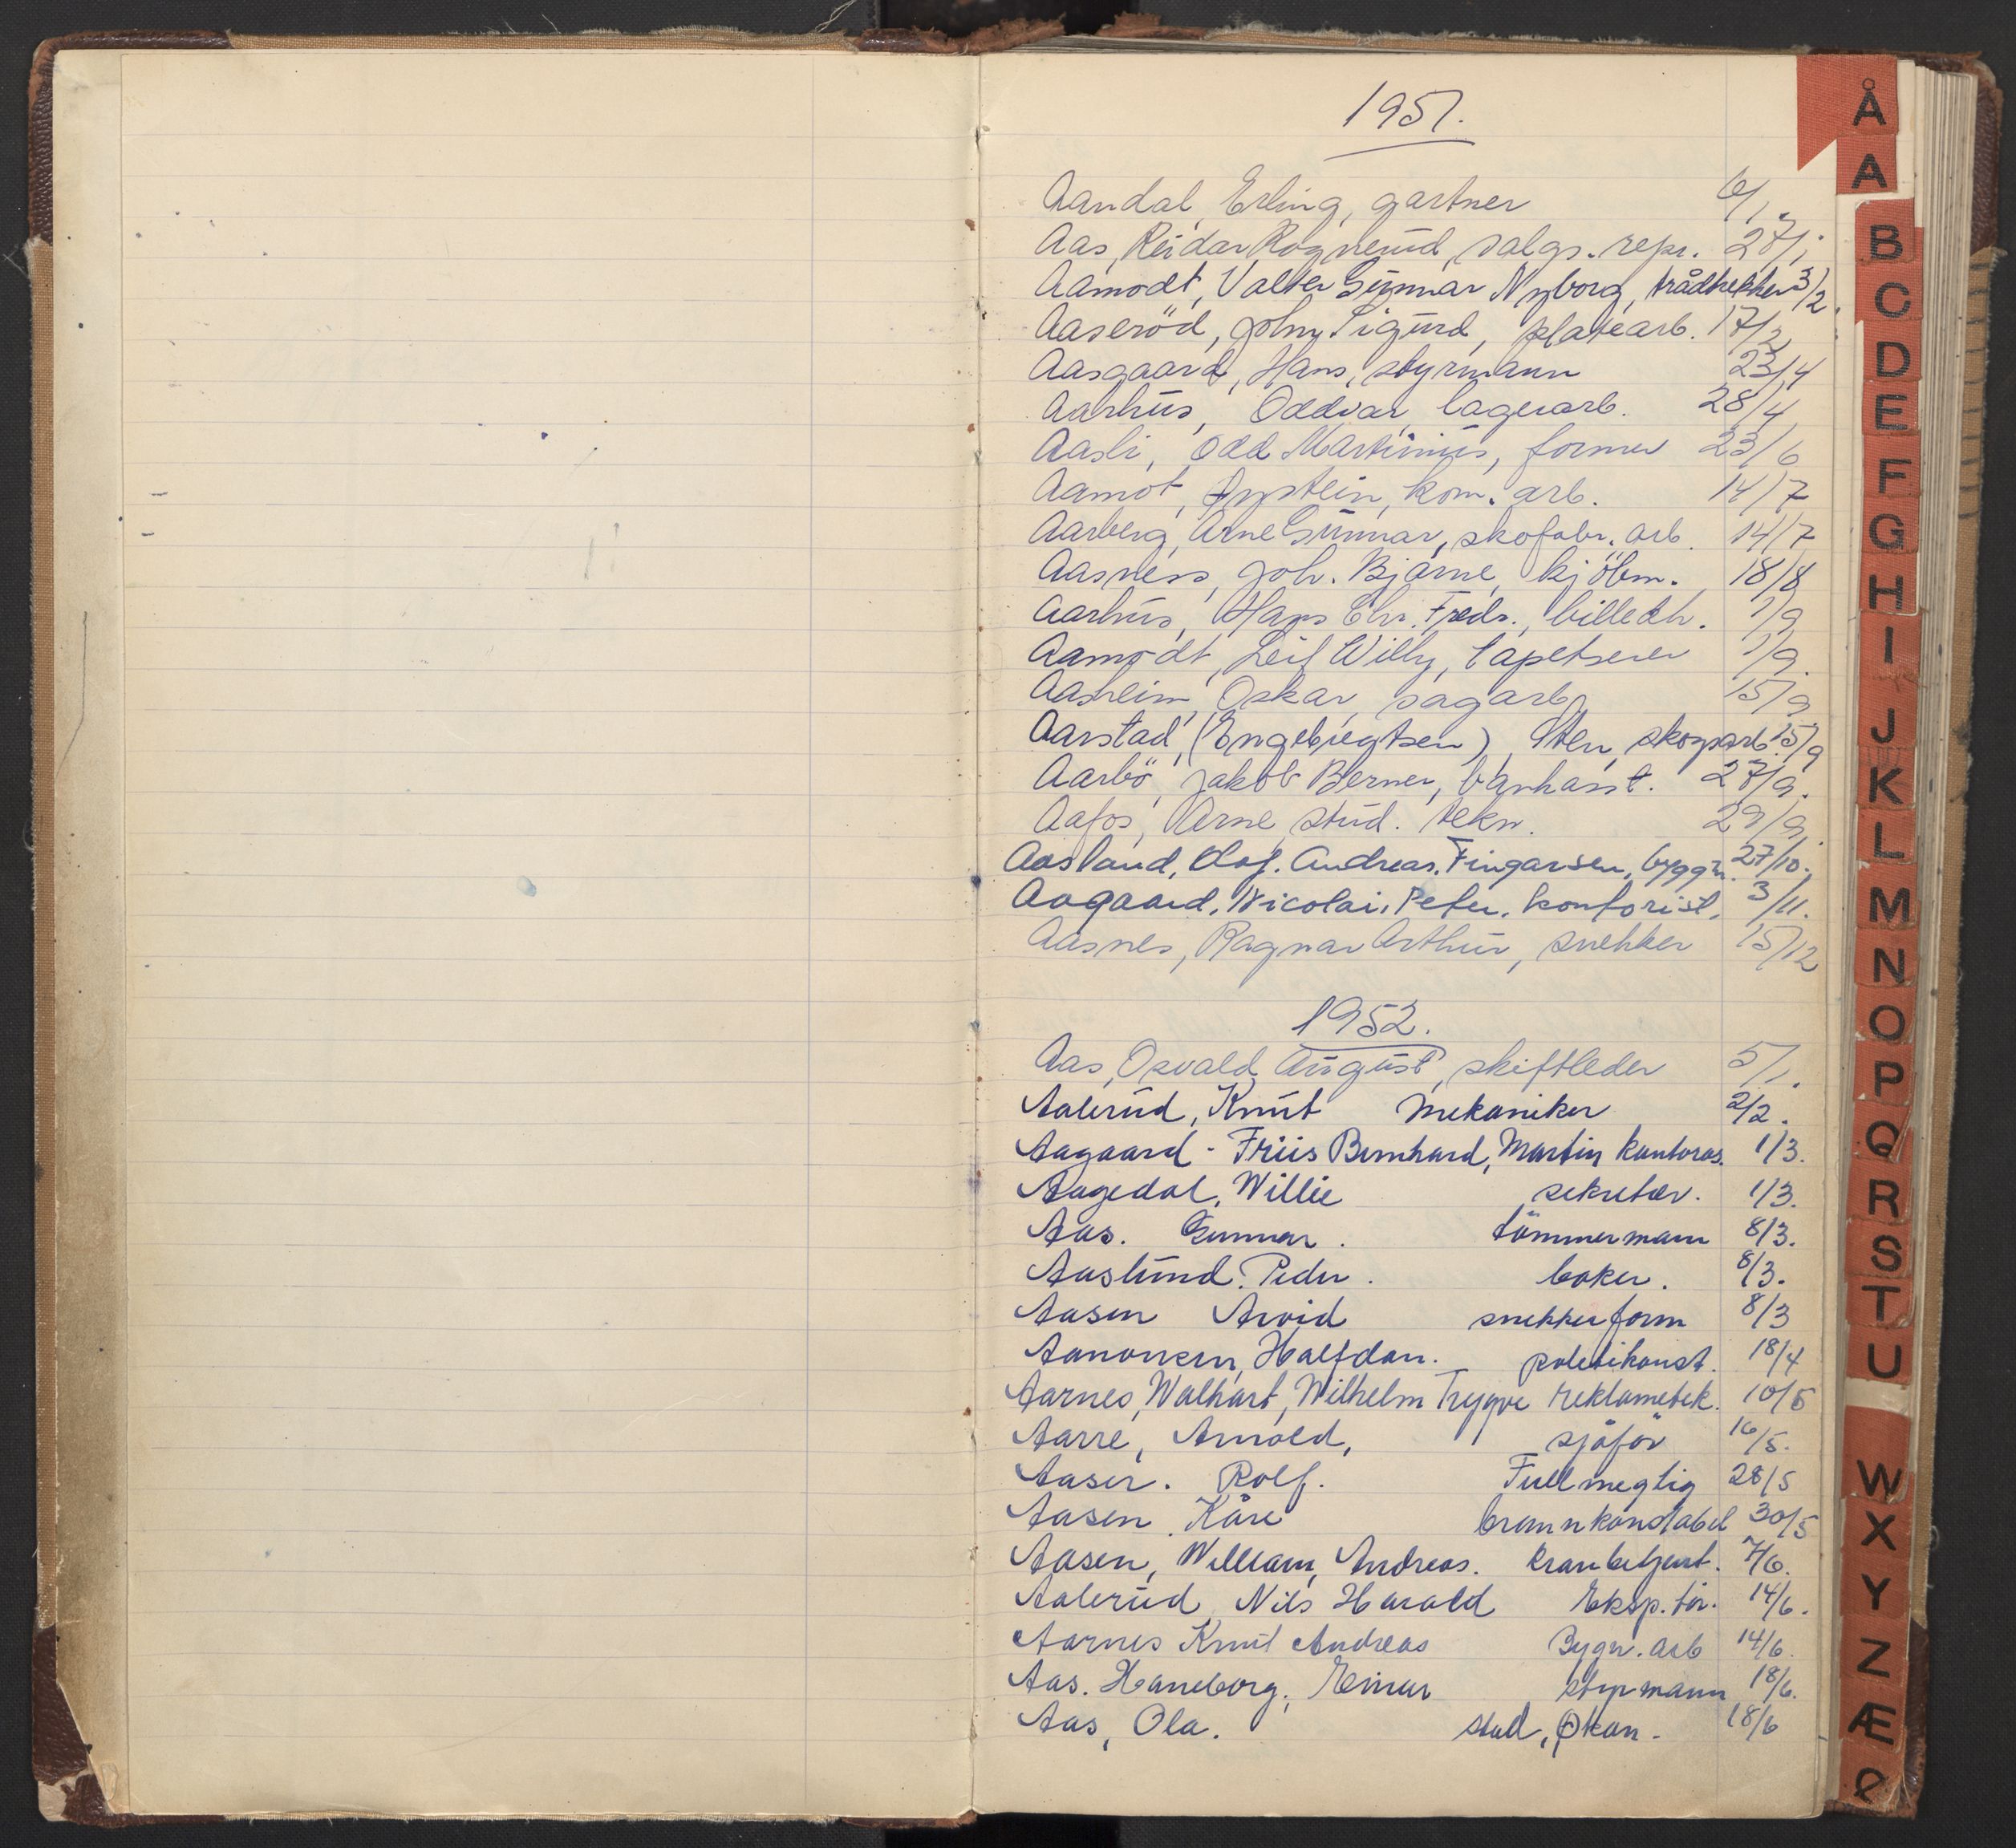 1951.
Aandal, Erling, gartner 6/1.
Aas, Reidar Rognerud, salgs. repr. 27/1.
Aamodt, Valter Gunnar Nyborg, trådtrekker 3/2.
Aaseröd, John Sigurd, platearb. 17/2
Aasgaard, Hans, styrmann 23/4
Aarhus, Oddvar, lagerarb. 28/4
Aasli, Odd Martinius, former 23/6
Aamot, Øystein, kom. arb. 14/7
Aarberg, Arne Gunnar, skofabr. arb. 14/7
Aasness, Joh. Bjarne, kjöbm. 18/8
Aarhus, Hans Chr. Fredr., billedh. 1/9
Aamodt, Leif Willy, tapetserer 1/9.
Aasheim, Oskar, sagarb. 15/9
Aarstad, (Engebregtsen), Sten, skogsarb. 15/9
Aarbö, Jakob Berner, bankasst. 27/9.
Aafos, Arne, stud. tekn. 29/9.
Aasland, Olaf. Andreas. Fingarsen, byggm. 27/10.
Aagaard, Nicolai, Peter, kontorist, 3/11.
Aasnes, Ragnar Arthur, snekker 15/12
1952.
Aas, Osvald August, skiftleder 5/1.
Aalerud, Knut mekaniker 2/2.
Aagaard - Friis Bernhard, Martin kontoras. 1/3.
Aagedal, Willie sekretær. 1/3.
Aas. Gunnar. tömmermann 8/3.
Aaslund. Peder. baker. 8/3.
Aasen Arvid snekkerform 8/3
Aanonsen, Halfdan. politikonst. 18/4
Aarnes, Walhart, Wilhelm Trygve reklametek. 10/5
Aarre, Arnold, sjåfør 16/5.
Aaser. Rolf. Fullmegtig 28/5
Aasen. Kåre brannkonstabel 30/5
Aasen, William, Andreas. kranbetjent. 7/6.
Aalerud, Nils Harald Eksp. tör. 14/6.
Aarnes Knut Andreas Bygn. arb 14/6.
Aas. Haneborg, Einar styrmann 18/6.
Aas, Ola. stud, Økon. 18/6
Å
A
B
C
D
E
F
G
H
I
J
K
L
M
N
O
P
Q
R
S
T
U
W
X
Y
Z
Æ
Ø